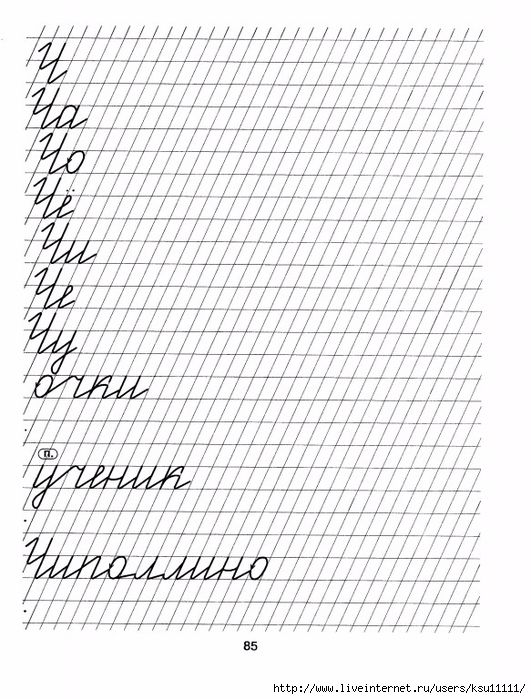 Ч
Ча
Чо
Чё
Чи
Че
Чу
очки
п.
ученик
Чиполлино
85
http://www.liveinternet.ru/users/ksu11111/